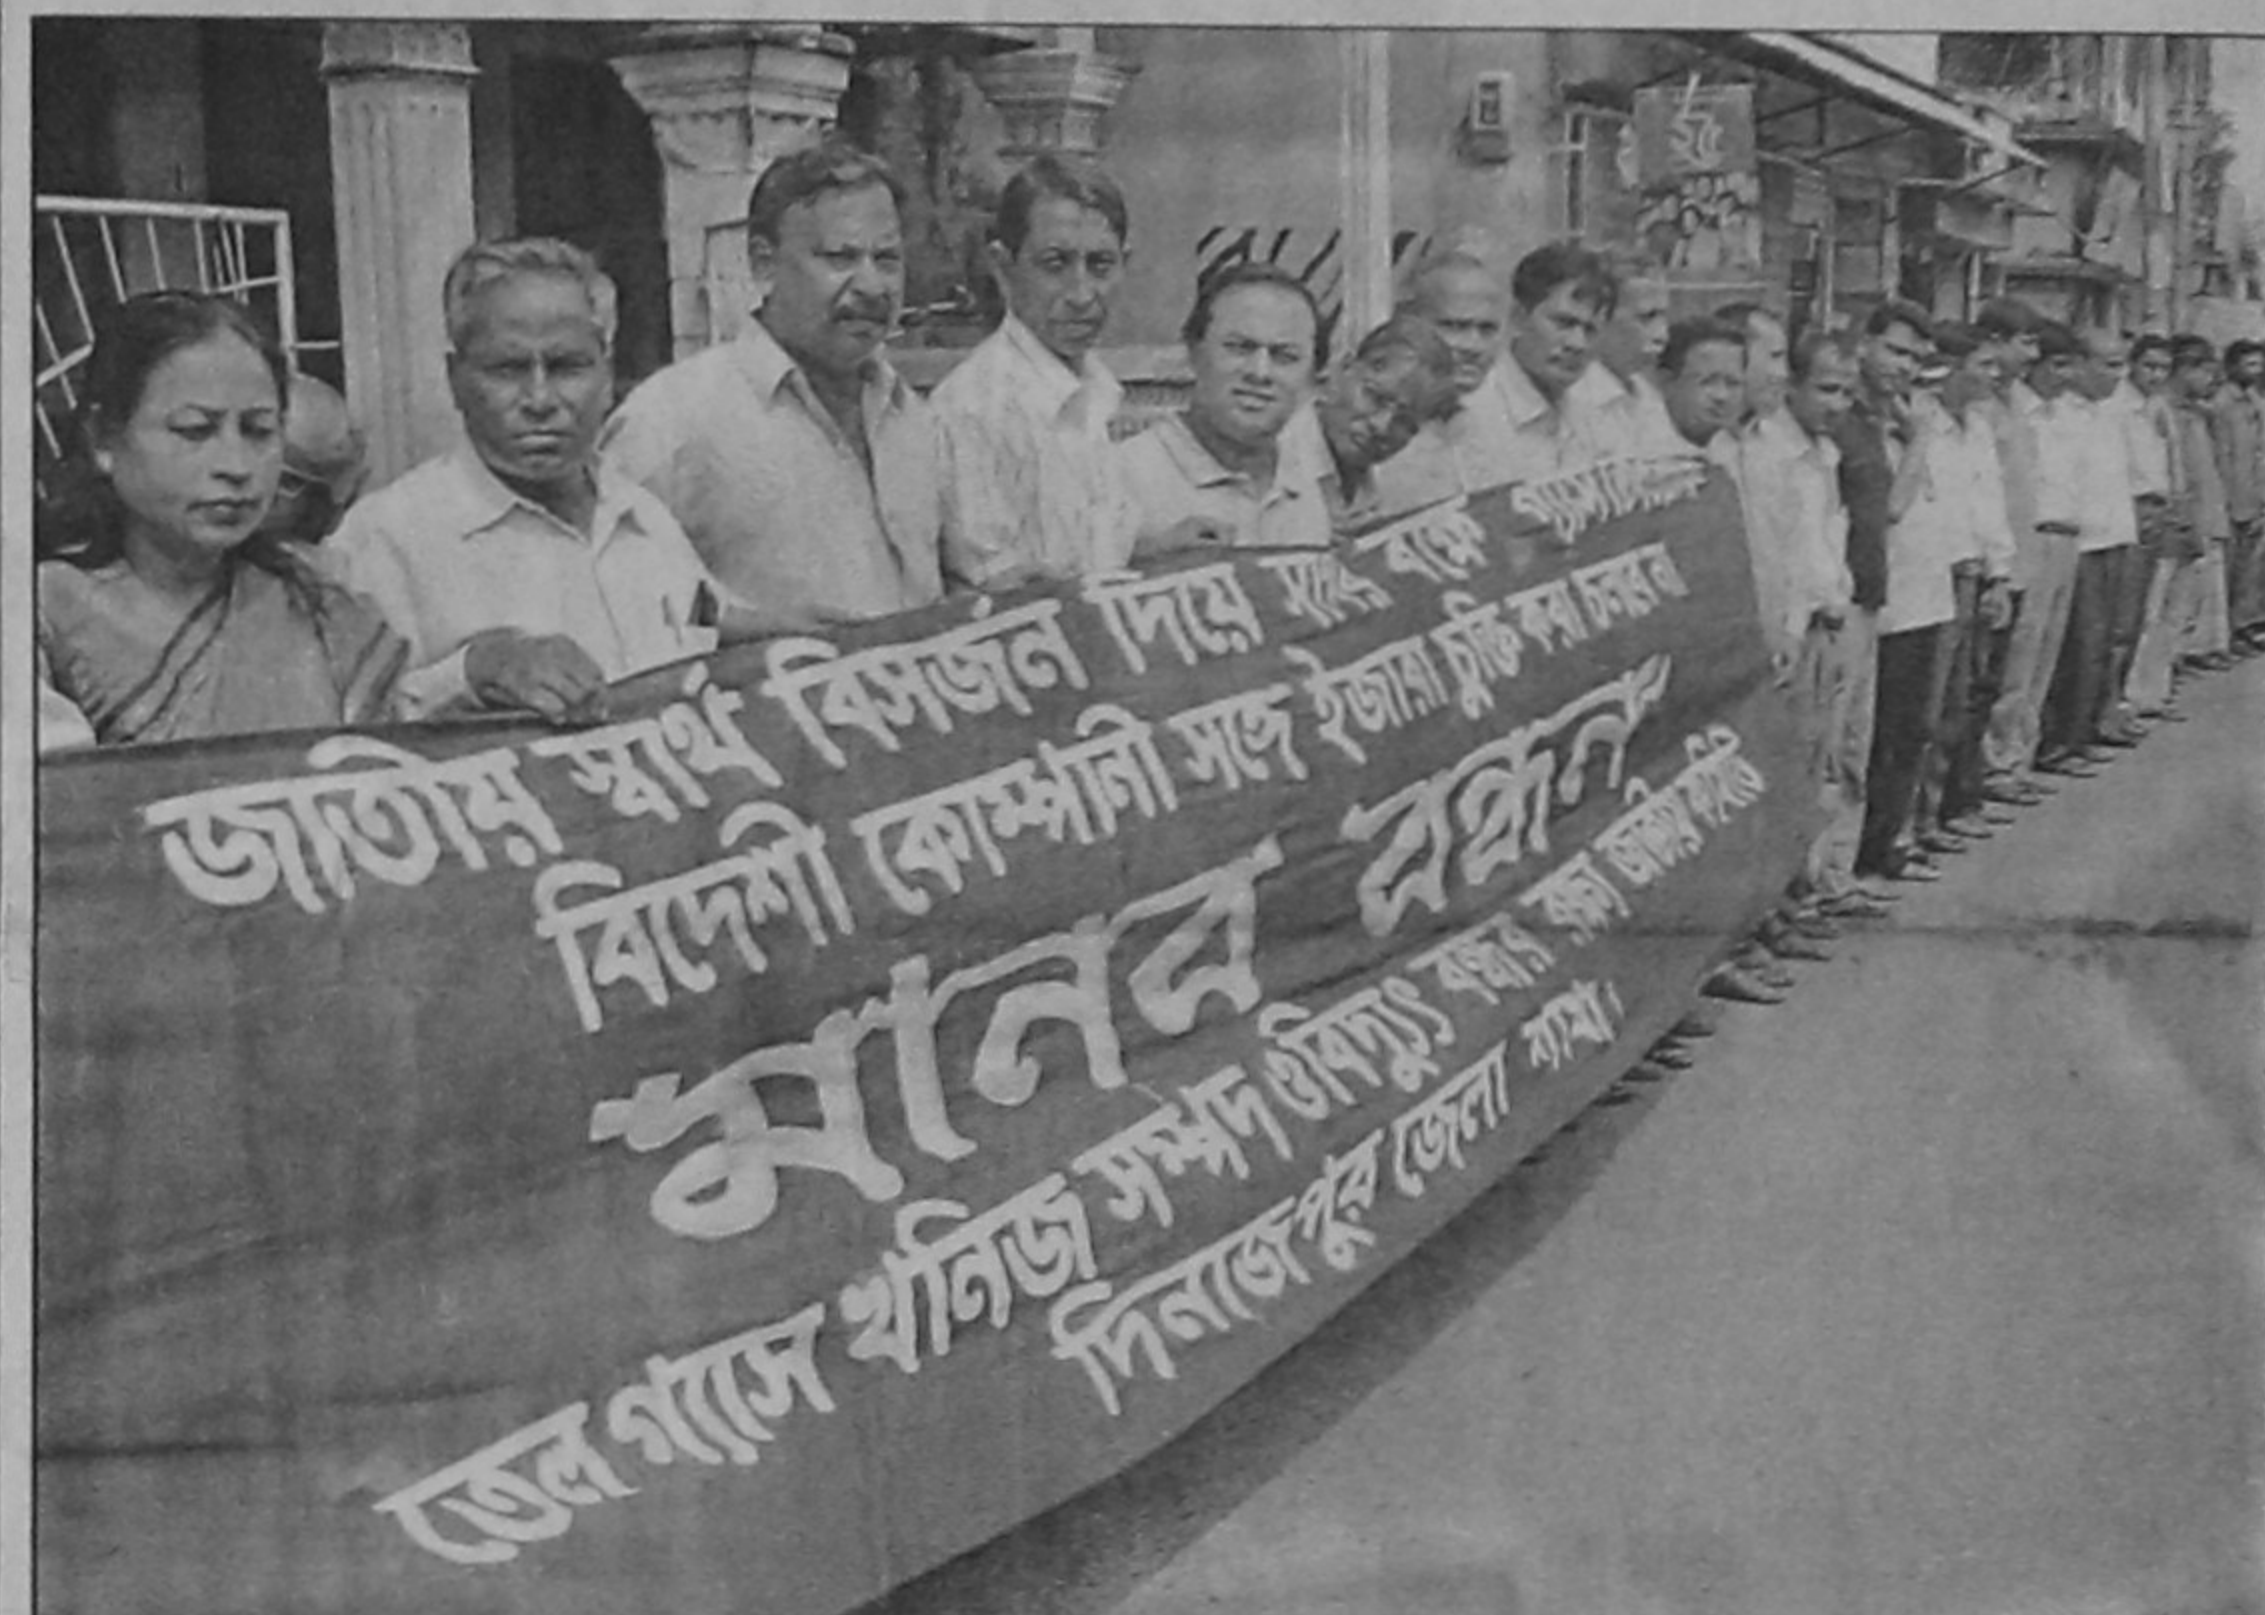 জাতীয় স্বার্থ বিসর্জন দিয়ে সাগর বক্ষে
বিদেশী কোম্পানী সঙ্গে ইজারা চুক্তি করা চলবে না
মানব বন্ধন
তেল গ্যাস খনিজ সম্পদ ও বিদ্যুৎ বন্দর রক্ষা জাতীয় কমিটি
দিনাজপুর জেলা শাখা।